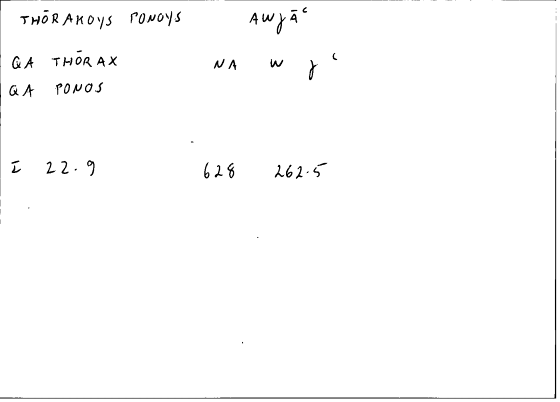 THŌRAKOYS PONOYS AWJĀᶜ
QA THŌRAX NA W J ᶜ
QA PONOS
I 22.9 628 262.5